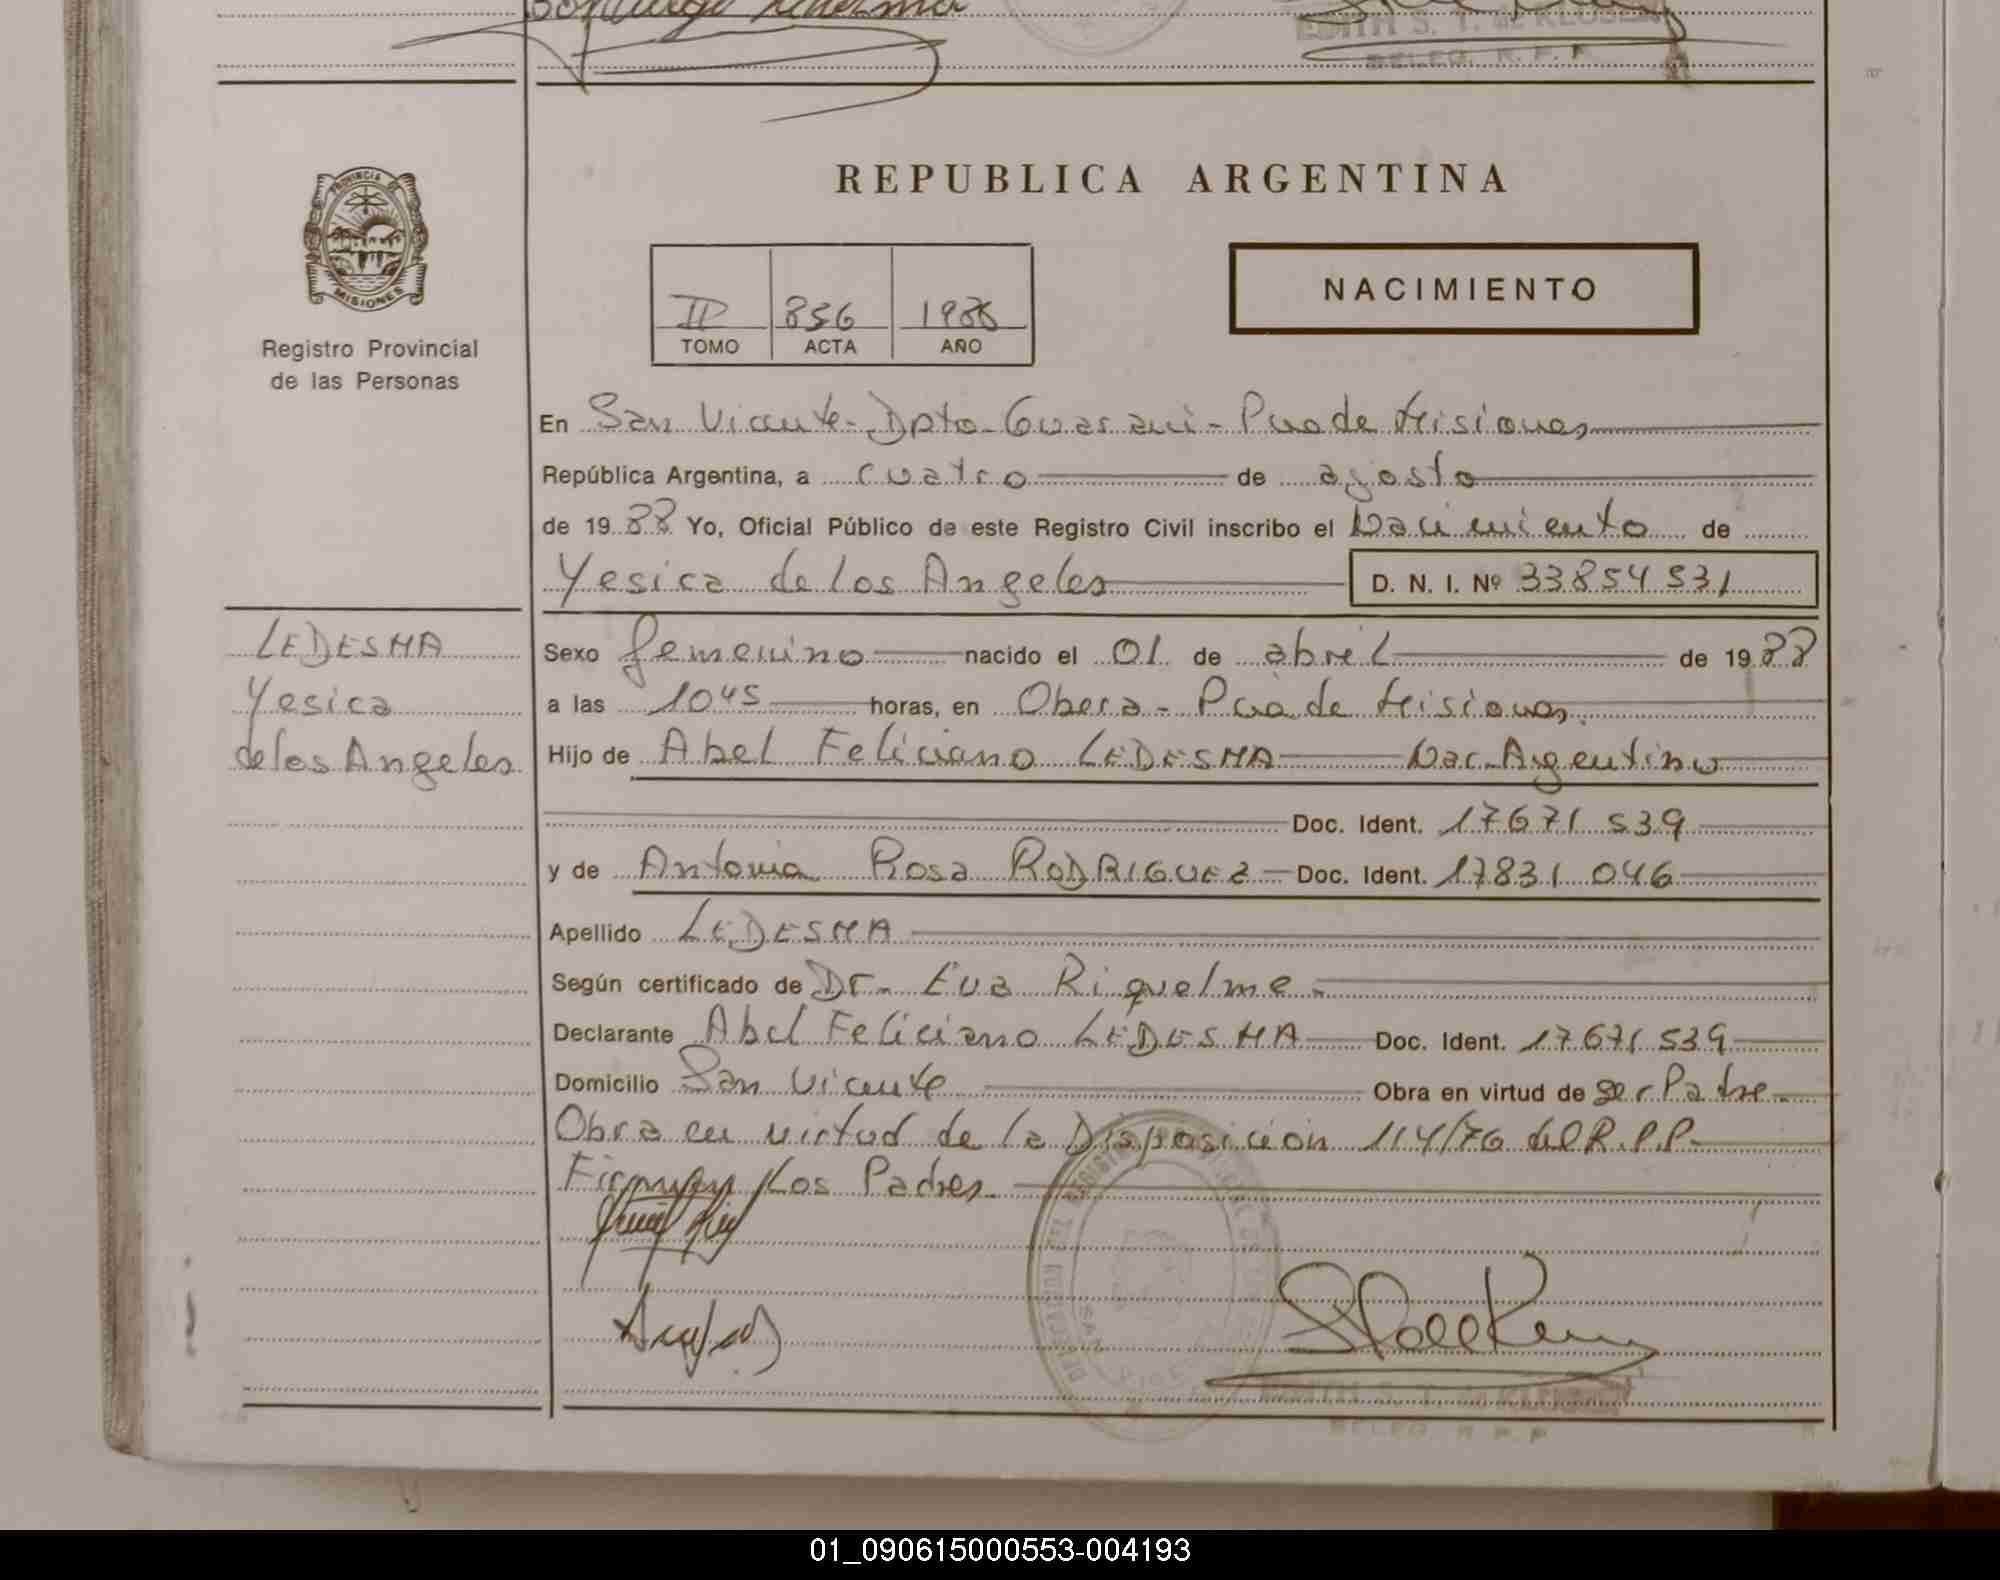 EDITH S. T. de KLUSENER
DELEG. R. P. P.
PROVINCIA DE
MISIONES
Registro Provincial
de las Personas
REPUBLICA ARGENTINA
II 856 1988
TOMO ACTA AÑO
NACIMIENTO
En San Vicente - Dpto - Guarani - Pcia de Misiones
República Argentina, a cuatro de agosto
de 1988 Yo, Oficial Público de este Registro Civil inscribo el Nacimiento de
Yesica de los Angeles D. N. I. Nº 33854531
LEDESMA
Yesica
de los Angeles
Sexo femenino nacido el 01 de abril de 1988
a las 1045 horas, en Obera - Pcia de Misiones
Hijo de Abel Feliciano LEDESMA Nac. Argentino
Doc. Ident. 17671539
y de Antonia Rosa RODRIGUEZ - Doc. Ident. 17831046
Apellido LEDESMA
Según certificado de Dr. Eva Riquelme
Declarante Abel Feliciano LEDESMA Doc. Ident. 17671539
Domicilio San Vicente Obra en virtud de ser Padre
Obra en virtud de la Disposición 114/76 del R.P.P.
Firman Los Padres
DELEG. R. P. P.
01_090615000553-004193